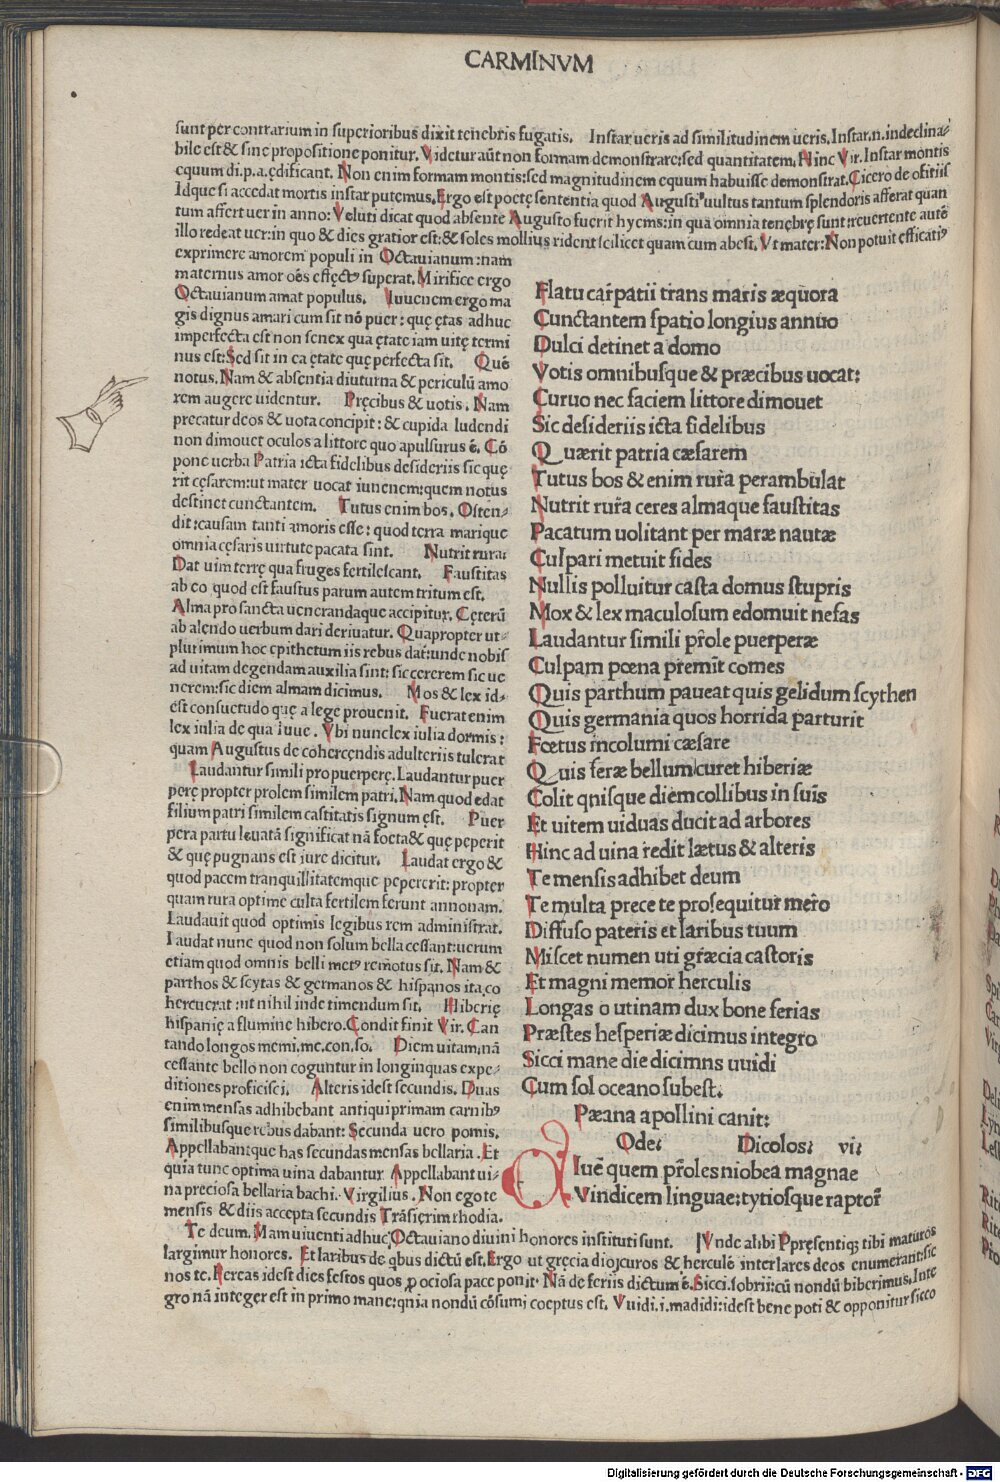 CARMINVM
sunt per contrarium in superioribus dixit tenebris fugatis. Instar ueris ad similitudinem ueris. Instar.n.indeclina-
bile est & sine propositione ponitur. Videtur aūt non formam demonstrare: sed quantitatem. Hinc Vir. Instar montis
equum di.p.a.ędificant. Non enim formam montis: sed magnitudinem equum habuisse demonstrat. Cicero de ofitiis
Idque si accedat mortis instar putemus. Ergo est poetę sententia quod Augusti uultus tantum splendoris afferat quan
tum affert uer in anno: Veluti dicat quod absente Augusto fuerit hyems: in qua omnia tenębrę sunt: reuertente autē
illo redeat uer: in quo & dies gratior est: & soles mollius rident scilicet quam cum abest. Vt mater: Non potuit efficatiꝰ
exprimere amorem populi in Octauianum: nam
maternus amor oēs effectꝰ superat. Mirifice ergo
Octauianum amat populus. Iuuenem ergo ma
gis dignus amari cum sit nō puer: quę ętas adhuc
imperfecta est non senex qua ętate iam uitę termi
nus est: Sed sit in ea ętate quę perfecta sit. Quē
notus. Nam & absentia diuturna & periculū amo
rem augere uidentur. Pręcibus & uotis. Nam
precatur deos & uota concipit: & cupida ludendi
non dimouet oculos a littore quo apulsurus ē. Cō
pone uerba Patria icta fidelibus desideriis sic quę
rit cęsarem: ut mater uocat iunenem: quem notus
destinet cunctantem. Tutus enim bos. Osten-
dit: causam tanti amoris esse: quod terra marique
omnia cęsaris uirtute pacata sint. Nutrit rura:
Dat uim terrę qua fruges fertilescant. Faustitas
ab eo quod est faustus parum autem tritum est.
Alma pro sancta uenerandaque accipitur. Cęterū
ab alendo uerbum dari deriuatur. Quapropter ut-
plurimum hoc epithetum iis rebus dat: unde nobis
ad uitam degendam auxilia sint: sic cererem sic ue
nerem: sic diem almam dicimus. Mos & lex id-
est consuetudo quę a lege prouenit. Fuerat enim
lex iulia de qua iuue. Vbi nunc lex iulia dormis:
quam Augustus de cohercendis adulteriis tulerat
Laudantur simili pro puerperę. Laudantur puer
perę propter prolem similem patri. Nam quod edat
filium patri similem castitatis signum est. Puer
pera partu leuatā significat nā foeta & quę peperit
& quę pugnans est iure dicitur. Laudat ergo &
quod pacem tranquillitatemque pepererit: propter
quam rura optime culta fertilem ferunt annonam.
Laudauit quod optimis legibus rem administrat.
Laudat nunc quod non solum bella cessant: uerum
etiam quod omnis belli metꝰ remotus sit. Nam &
parthos & scytas & germanos & hispanos ita co
hercuerat: ut nihil inde timendum sit. Hiberię
hispanię a flumine hibero. Condit finit Vir. Can
tando longos memi.me.con.so. Diem uitam: nā
cessante bello non coguntur in longinquas expe-
ditiones proficisci. Alteris idest secundis. Duas
enim mensas adhibebant antiqui primam carnibꝰ
similibusque rebus dabant: Secunda uero pomis.
Appellabantque has secundas mensas bellaria. Et
quia tunc optima uina dabantur Appellabant ui-
na preciosa bellaria bachi. Virgilius. Non ego te
mensis & diis accepta secundis Trāsierim rhodia.
Flatu carpatii trans maris æquora
Cunctantem spatio longius annuo
Dulci detinet a domo
Votis omnibusque & præcibus uocat:
Curuo nec faciem littore dimouet
Sic desideriis icta fidelibus
Quærit patria cæsarem
Tutus bos & enim rura perambulat
Nutrit rura ceres almaque faustitas
Pacatum uolitant per maræ nautæ
Culpari metuit fides
Nullis polluitur casta domus stupris
Mox & lex maculosum edomuit nefas
Laudantur simili prole puerperæ
Culpam pœna premit comes
Quis parthum paueat quis gelidum scythen
Quis germania quos horrida parturit
Fœtus incolumi cæsare
Quis feræ bellum curet hiberiæ
Colit qnisque diem collibus in suis
Et uitem uiduas ducit ad arbores
Hinc ad uina redit lætus & alteris
Te mensis adhibet deum
Te multa prece te prosequitur mero
Diffuso pateris et laribus tuum
Miscet numen uti græcia castoris
Et magni memor herculis
Longas o utinam dux bone ferias
Præstes hesperiæ dicimus integro
Sicci mane die dicimns uuidi
Cum sol oceano subest.
Pæana apollini canit:
Ode: Dicolos: vii
Diuē quem proles niobea magnae
Vindicem linguae: tytiosque raptor
Te deum. Nam uiuenti adhuc Octauiano diuini honores instituti sunt. Vnde alibi Ppręsentiq; tibi maturos
largimur honores. Et laribus de qbus dictū est. Ergo ut gręcia dioscuros & herculē inter lares deos enumerant: sic
nos te. Fereas idest dies festos quos p ociosa pace ponit. Nā de feriis dictum ē. Sicci. sobrii: cū nondū biberimus. Inte
gro nā integer est in primo mane: qnia nondū cōsumi coeptus est. Vuidi.i.madidi: idest bene poti & opponitur sicco
Digitalisierung gefördert durch die Deutsche Forschungsgemeinschaft - DFG